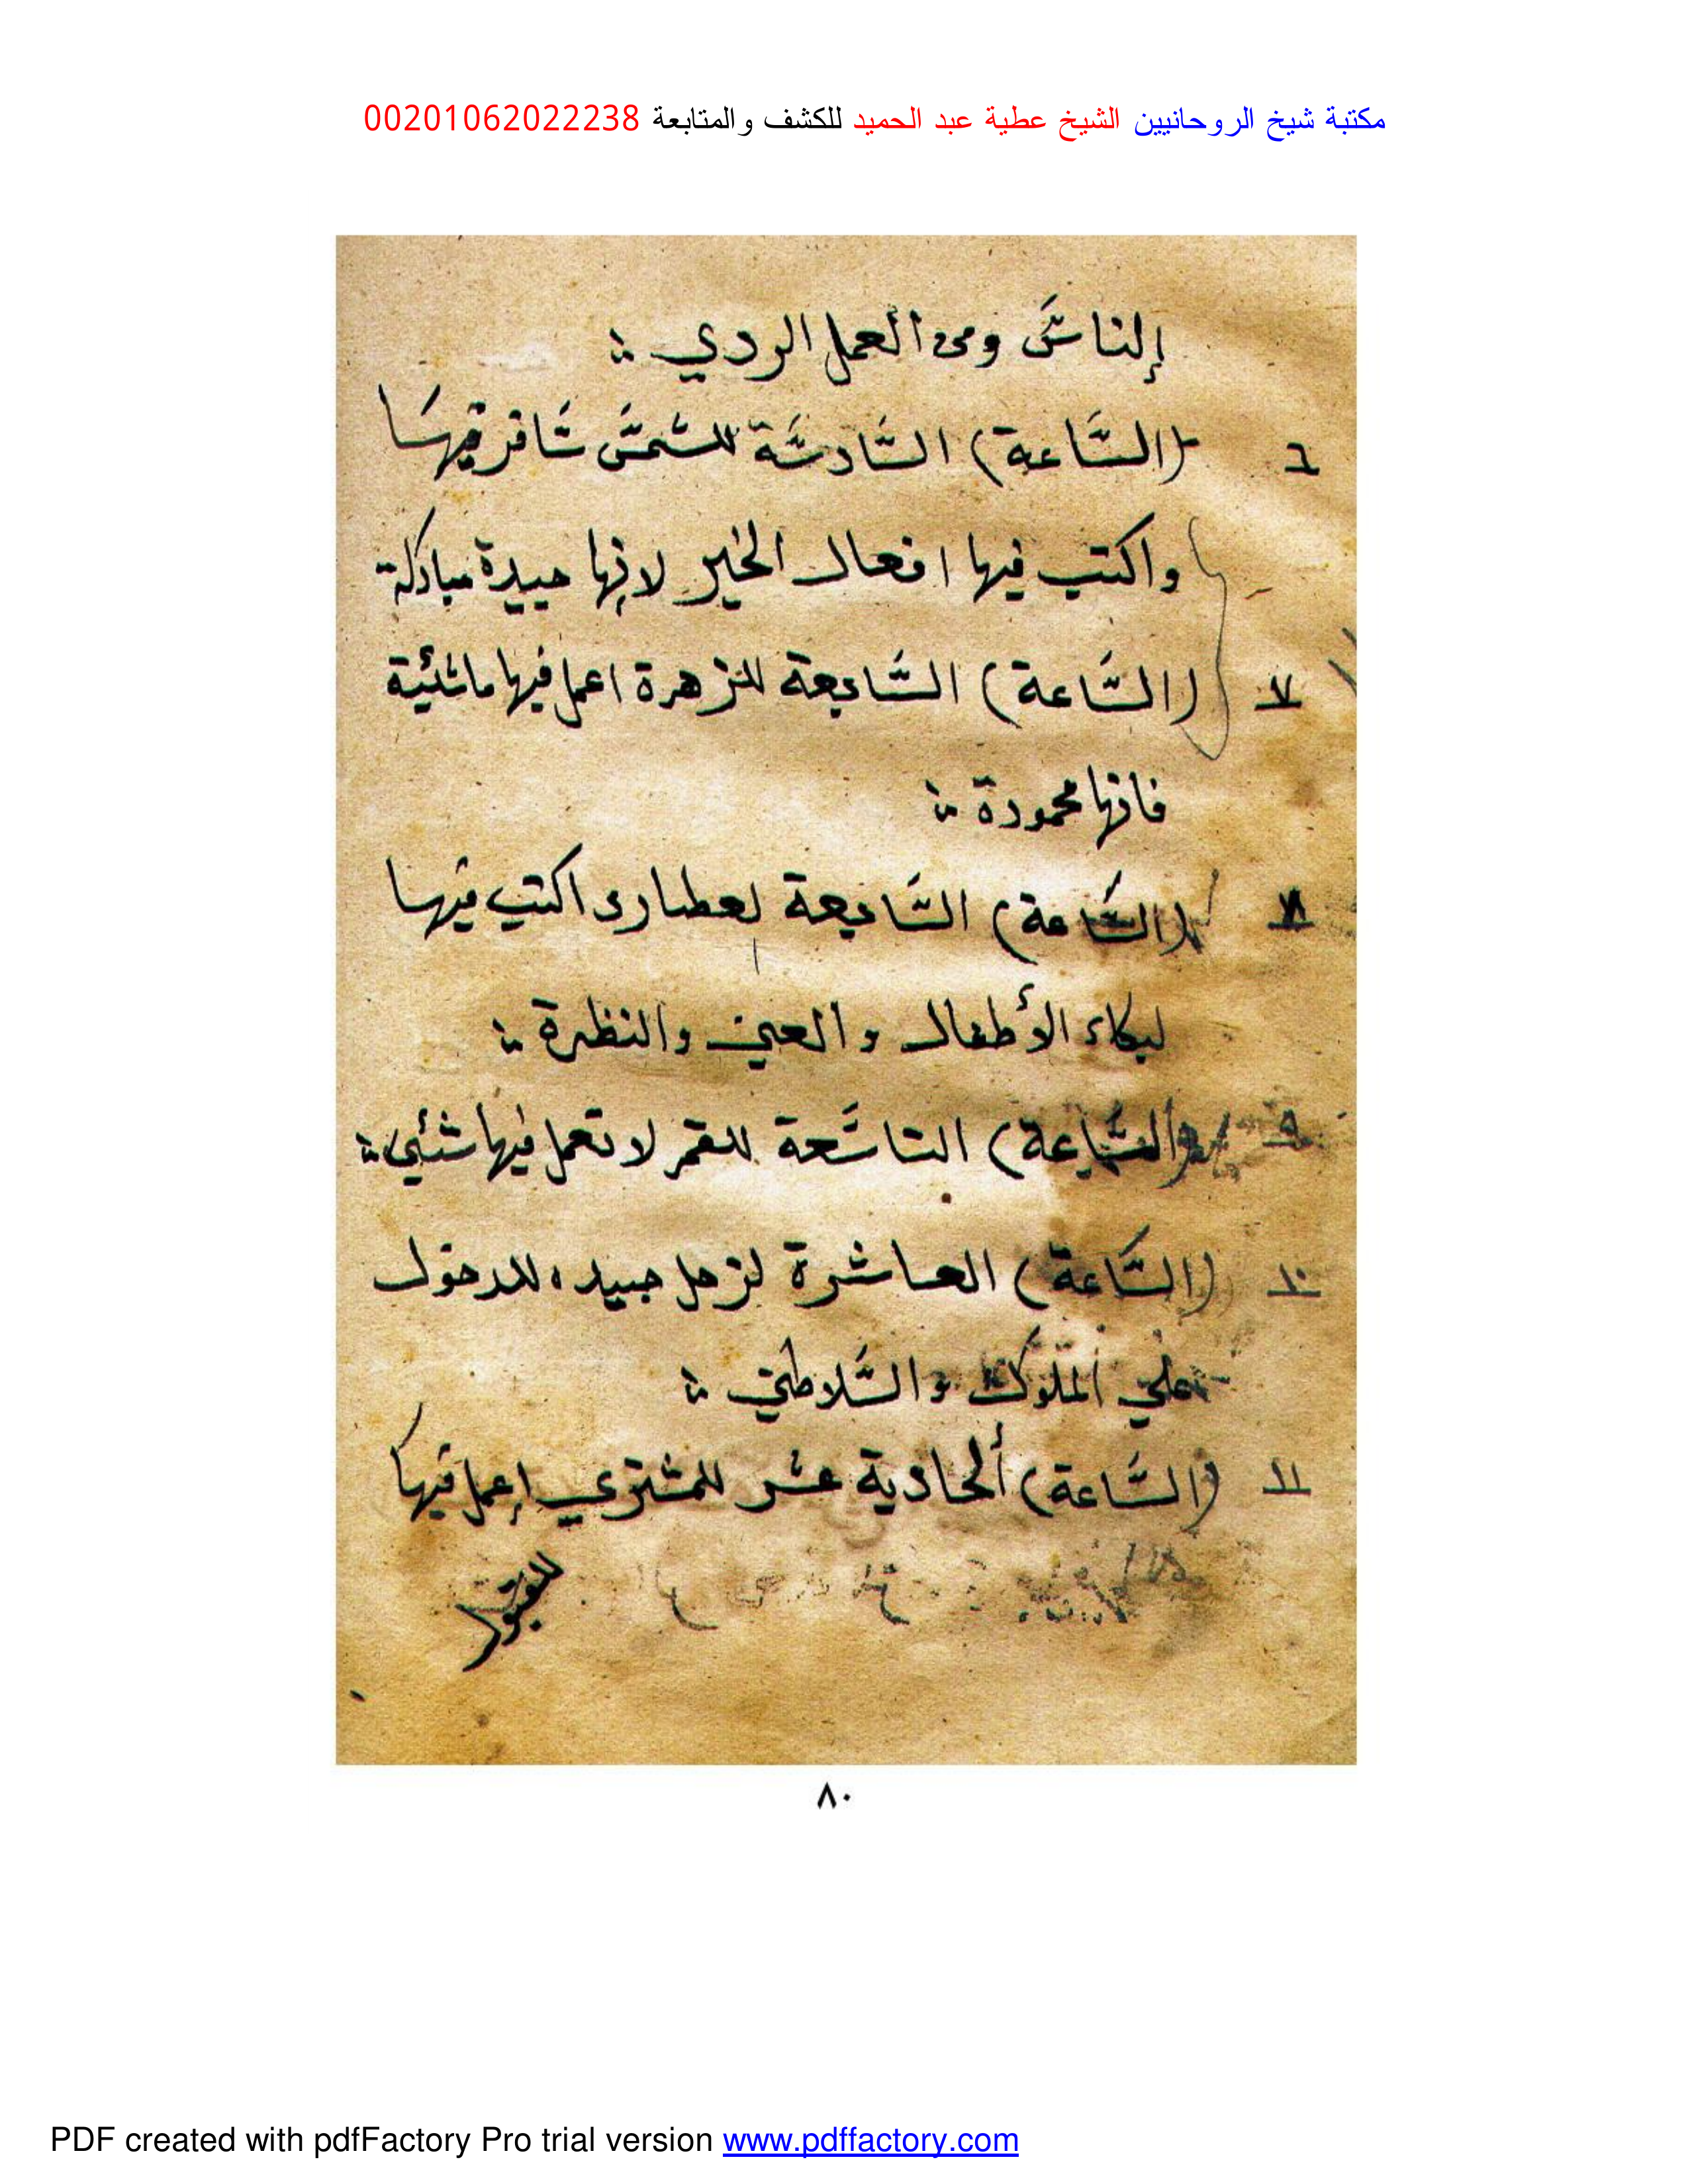 مكتبة شيخ الروحانيين الشيخ عطية عبد الحميد للكشف والمتابعة 00201062022238
إلناس ومن العمل الردي
٦ (السَّاعة) السَّادسَّة للشمسَّ سَّافر فيها
واكتب فيها افعال الخير لانها جيدة مباركة
٧ (السَّاعة) السَّابعة للزهرة اعمل فيها ماشئية
فانها محمودة
٨ (السَّاعة) السَّابعة لعطارد اكتب فيها
لبكاء الأطفال والعين والنظرة
٩ (السَّاعة) التاسَعة للقمر لا تعمل فيها شئي
١٠ (السَّاعة) العاشرة لزحل جيد، للدخول
علي الملوك والسَّلاطين
١١ (السَّاعة) ألحادية عشر للمشتري إعمل فيها
للقبول
٨٠
PDF created with pdfFactory Pro trial version www.pdffactory.com